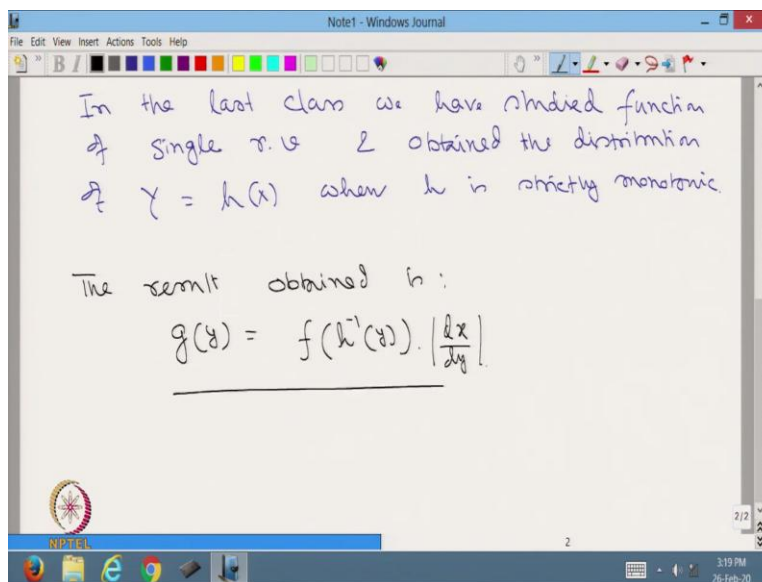 Note1 - Windows Journal
File Edit View Insert Actions Tools Help
B I
In the last class we have studied function
of single r.v & obtained the distribution
of Y = h(X) when h is strictly monotonic.
The result obtained is:
g(y) = f(h⁻¹(y)). |dx/dy|.
NPTEL
2
2/2
3:19 PM
26-Feb-20